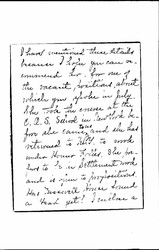 I have mentioned these details
because I hope you can re-
commend her for one of
the vacant positions about
which you spoke in July
She took the course at the
C.A.S. School in New York be
fore she came, and she has
returned to Kelly to work
under Homer Folks. She
to do Settlement work
and is open to propositions.
Has house found
a Head yet? I enclose a